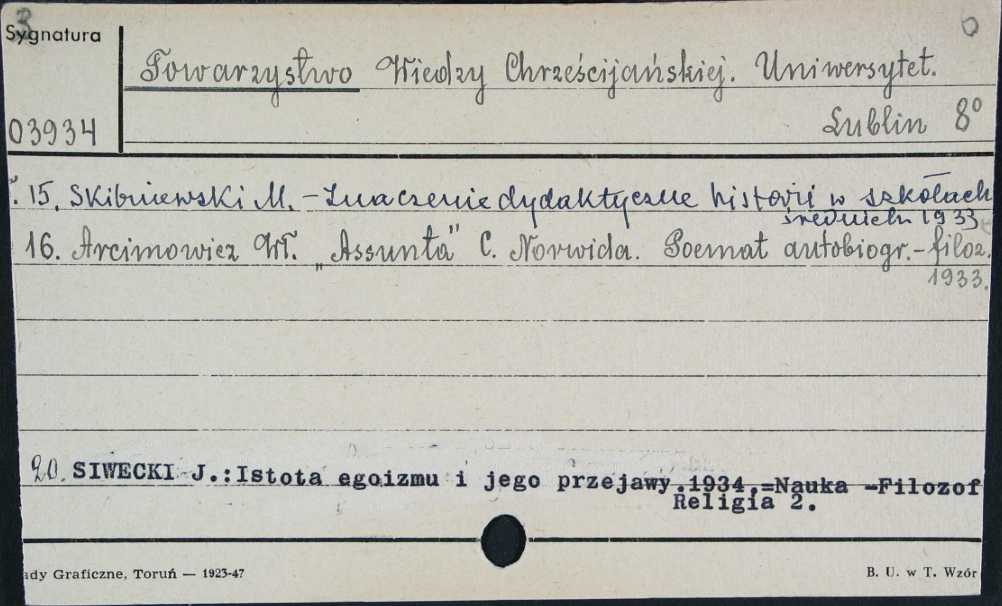 3
Sygnatura
0
Towarzystwo Wiedzy Chrześcijańskiej. Uniwersytet.
03934
Lublin 8°
15. Skibniewski M. – Znaczenie dydaktyczne historii w szkołach
średnich 1933
16. Arcimowicz Wł. „Assunta" C. Norwida. Poemat autobiogr.-filoz.
1933.
20. SIWECKI J.:Istota egoizmu i jego przejawy.1934.=Nauka -Filozof
Religia 2.
ady Graficzne, Toruń — 1923-47
B. U. w T. Wzór